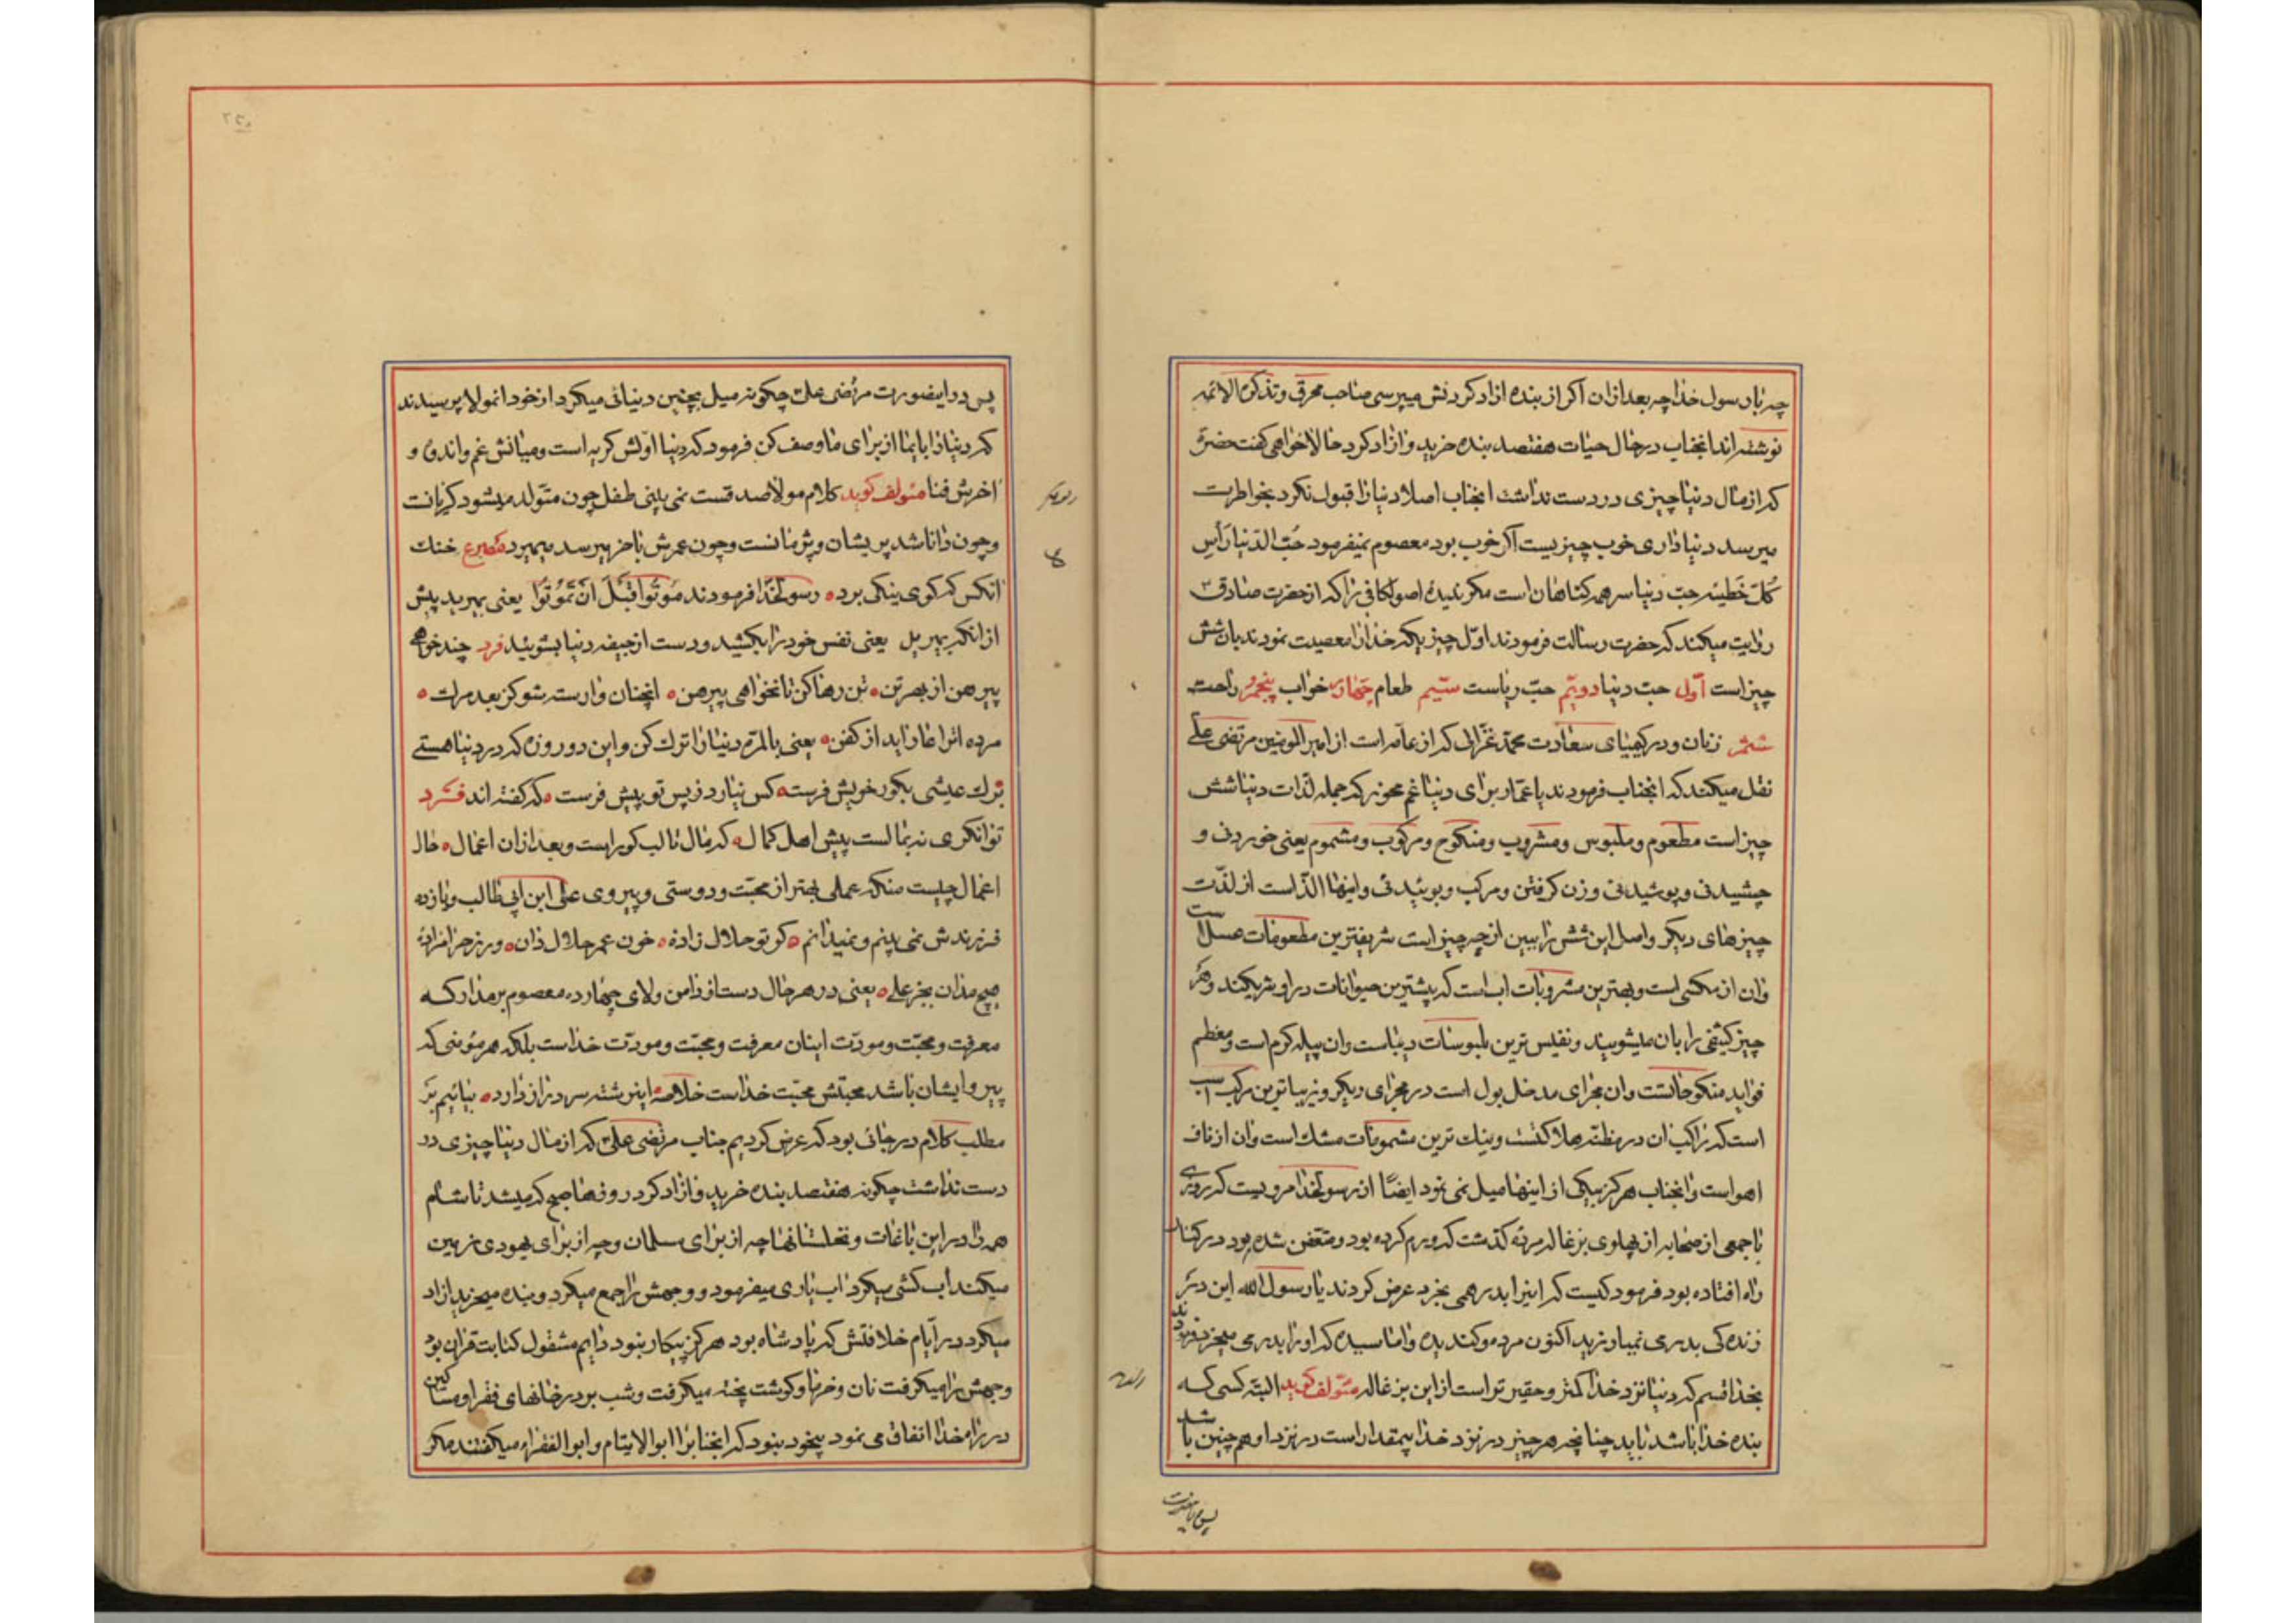 چه باب رسول خدا چه بعد از ان اکر از بنده ازاد کردنش میپرسی صاحب محرق و تذکرة الائمه
نوشته اند انجناب در حال حیات هفتصد بنده خرید و ازاد کرد حالا خواهی کفت حضرة
که از مال دنیا چیزی در دست نداشت انجناب اصلا دنیا را قبول نکرد بخواطرت
میرسد دنیا داری خوب چیزیست اکر خوب بود معصوم نمیفرمود حُبّ الدّنیا رَأس
کُلّ خَطیئه حبّ دنیا سر همه کناهان است مکر ندیدهٔ اصول کافی را که از حضرت صادق
روایت میکند که حضرت رسالت فرمودند اوّل چیزیکه خدا را معصیت نمودند بان شش
چیز است اوّل حبّ دنیا دویّم حبّ ریاست سیّیم طعام چهارم خواب پنجم راحت
ششم زنان و در کیمیای سعادت محمّد غزّالی که از عامه است از امیر المومنین مرتضی علی
نقل میکند که انجناب فرمودند یا عمّار برای دنیا غم مخور که جمله لذّات دنیا شش
چیز است مطعوم و ملبوس و مشروب و منکوح و مرکوب و مشموم یعنی خوردنی و
چشیدنی و پوشیدنی و زن کرفتن و مرکب و بوئیدنی و اینها الذّ است از لذّت
چیزهای دیکر و اصل این شش را ببین از چه چیز است شریفترین مطعومات عسل است
وان از مکسی است و بهترین مشروبات اب است که بیشترین حیوانات در او شریکند و هر
چیز کثیفی را بان میشویند و نفیس ترین ملبوسات دیباست وان پیله کرم است و معظم
فواید منکوحاتست وان مجرای مدخل بول است در مجرای دیکر و زیباترین مرکب اسب
است که راکب ان در مظنّه هلاکتست و نیك ترین مشمومات مشك است وان از ناف
اهو است و انجناب هرکز بیکی از اینها میل نمی نمود ایضًا از رسولخدا مرویست که روزی
با جمعی از صحابه از پهلوی بزغاله مردهٔ کذشت که ورم کرده بود و متعفن شده بود در کنار
راه افتاده بود فرمود کیست که اینرا بدرهمی بخرد عرض کردند یا رسول الله این در
زنده کی بدرمی نمیارزید اکنون مرده و کندیده و اماسیده که او را بدرمی میخرد فرمودند
بخدا قسم که دنیا نزد خدا کمتر و حقیرتر است از این بزغاله مئولف کوید البتّه کسی که
بنده خدا باشد باید چنانچه هر چیز در نزد خدا بیمقدار است در نزد او هم چنین باشد
پس در اینصورت
پس در اینصورت مرتضی علی چکونه میل بچنین دنیائی میکرد از خود انمولا پرسیدند
که دنیا را یا بما از برای ما وصف کن فرمود که دنیا اوّلش کریه است و میانش غم و اندوه و
اخرش فنا مئولف کوید کلام مولا صدقست نمی بینی طفل چون متولّد میشود کریانست
و چون دانا شد پریشان و پژمانست و چون عمرش باخر میرسد میمیرد مصرع خنك
انکس که کوی نیکی برد ه رسولخدا فرمودند مُوتُوا قَبْلَ اَنْ تَمُوتُوا یعنی بمیرید پیش
از انکه بمیرید یعنی نفس خود را بکشید و دست از جیفه دنیا بشوئید فرد چند خواهی
پیرهن از بهر تن ه تن رها کن تا نخواهی پیرهن ه انچنان وارسته شو کز بعد مرك ه
مرده اترا عار اید از کفن ه یعنی بالمرّه دنیا را ترك کن و این دو روزه که در دنیا هستی
برك عیشی بکور خویش فرست ه کس نیارد ز پس تو پیش فرست ه که کفته اند فرد
توانکری نه بمالست پیش اهل کمال ه که مال تا لب کور است و بعد از ان اعمال ه حال
اعمال چیست منکه عملی بهتر از محبّت و دوستی و پیروی علی ابن ابی طالب و یازده
فرزندش نمی بینم و نمیدانم ه کر تو حلال زاده ه خون عمر حلال دان ه ورنه حرامزادهٔ
هیچ مدان بجز علی ه یعنی در هر حال دست از دامن ولای چهارده معصوم برمدار که
معرفت و محبّت و مودّت اینان معرفت و محبّت و مودّت خداست بلکه هر مؤمنی که
پیرو ایشان باشد محبتش محبّت خداست خلاصه اینرشته سر دراز دارد ه بیائیم بر
مطلب کلام در جائی بود که عرض کردیم جناب مرتضی علی که از مال دنیا چیزی در
دست نداشت چکونه هفتصد بنده خرید و ازاد کرد روزها صبح که میشد تا شام
همه را در این باغات و نخلستانها چه از برای سلمان و چه از برای یهودی زمین
میکند اب کشی میکرد اب یاری میفرمود و وجهش را جمع میکرد و بنده میخرید ازاد
میکرد در ایّام خلافتش که پادشاه بود هرکز بیکار نبود دایم مشغول کتابت قران بود
وجهش را میکرفت نان و خرما و کوشت پخته میکرفت و شب بر در خانهای فقرا و مساکین
در راه خدا انفاق می نمود بیخود نبود که انجناب را ابو الایتام و ابو الفقراء میکفتند مکر